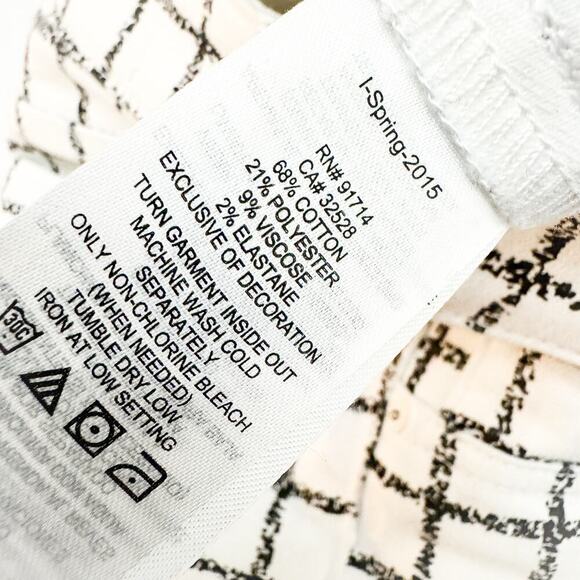 I-Spring-2015
RN# 91714
CA# 32528
68% COTTON
21% POLYESTER
9% VISCOSE
2% ELASTANE
EXCLUSIVE OF DECORATION
TURN GARMENT INSIDE OUT
MACHINE WASH COLD
SEPARATELY
ONLY NON-CHLORINE BLEACH
(WHEN NEEDED)
TUMBLE DRY LOW
IRON AT LOW SETTING
30C